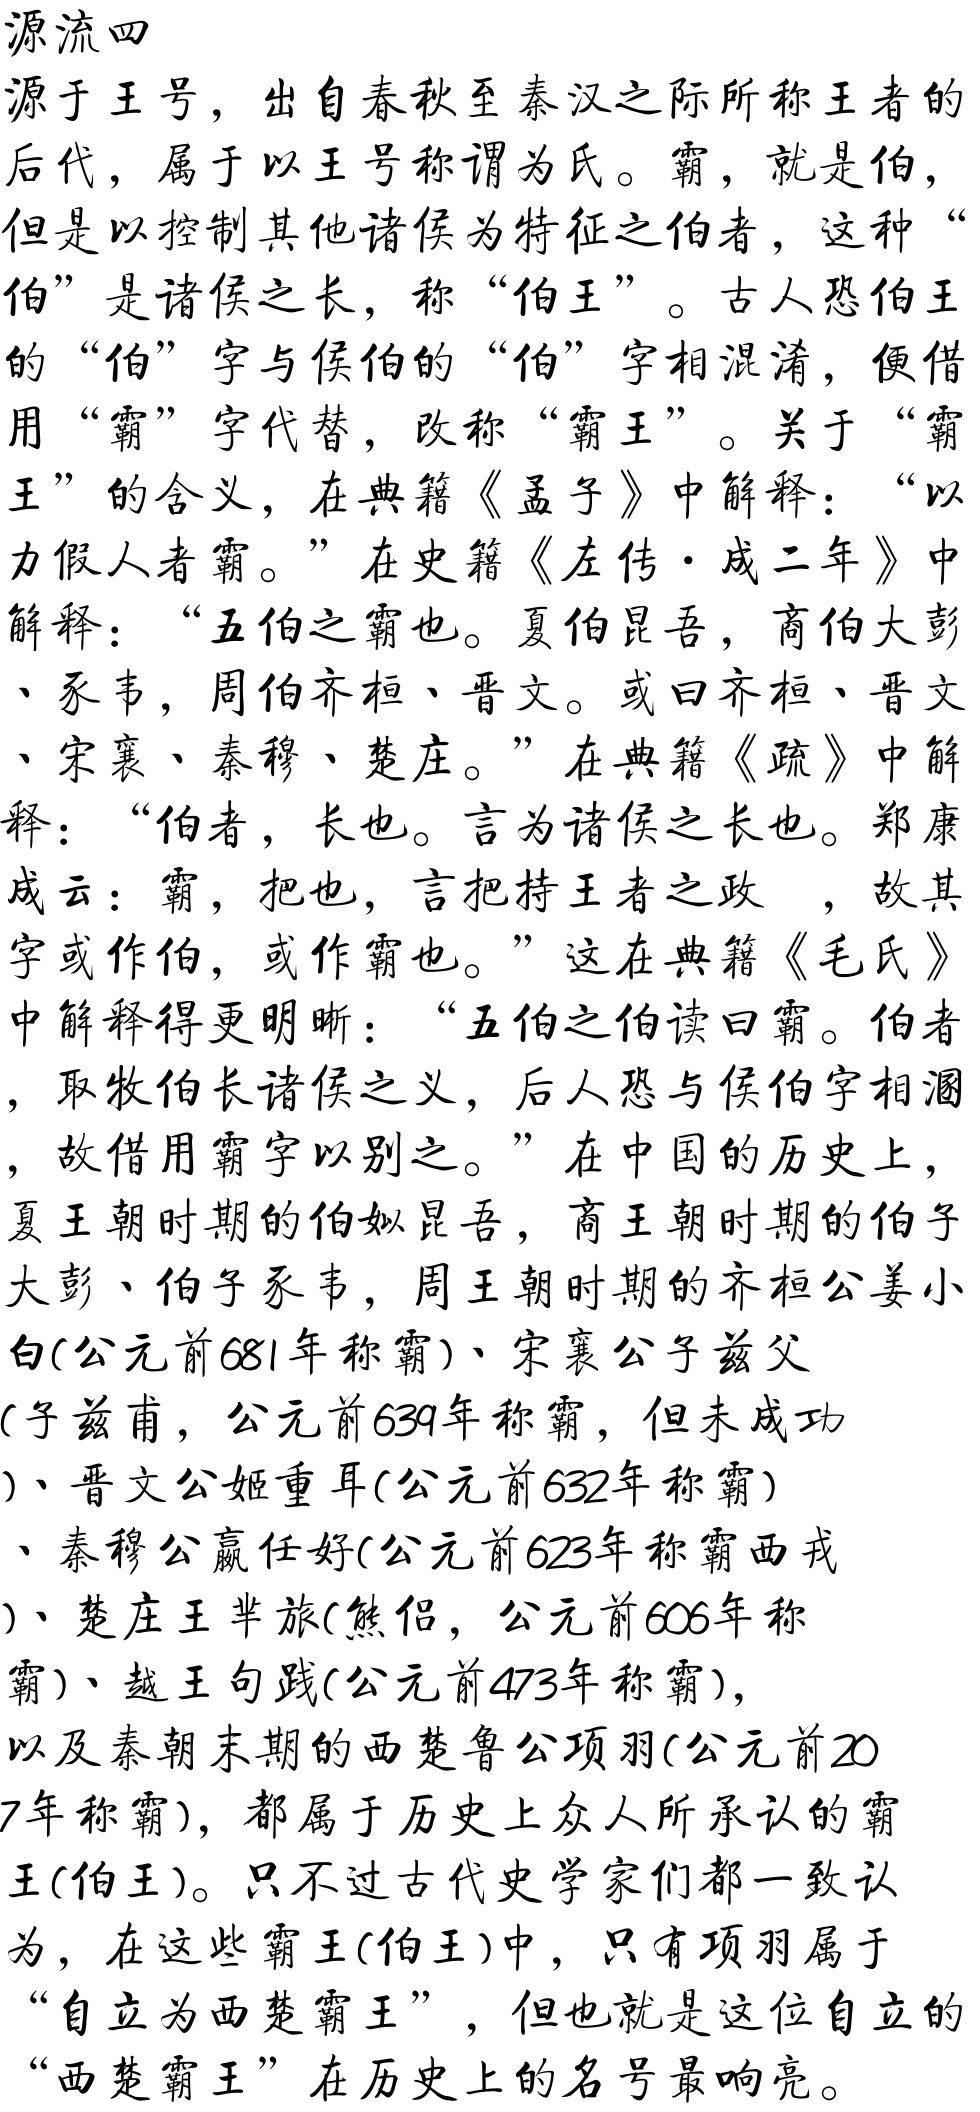 源流四
源于王号，出自春秋至秦汉之际所称王者的
后代，属于以王号称谓为氏。霸，就是伯，
但是以控制其他诸侯为特征之伯者，这种“
伯”是诸侯之长，称“伯王”。古人恐伯王
的“伯”字与侯伯的“伯”字相混淆，便借
用“霸”字代替，改称“霸王”。关于“霸
王”的含义，在典籍《孟子》中解释：“以
力假人者霸。”在史籍《左传·成二年》中
解释：“五伯之霸也。夏伯昆吾，商伯大彭
、豕韦，周伯齐桓、晋文。或曰齐桓、晋文
、宋襄、秦穆、楚庄。”在典籍《疏》中解
释：“伯者，长也。言为诸侯之长也。郑康
成云：霸，把也，言把持王者之政　，故其
字或作伯，或作霸也。”这在典籍《毛氏》
中解释得更明晰：“五伯之伯读曰霸。伯者
，取牧伯长诸侯之义，后人恐与侯伯字相溷
，故借用霸字以别之。”在中国的历史上，
夏王朝时期的伯姒昆吾，商王朝时期的伯子
大彭、伯子豕韦，周王朝时期的齐桓公姜小
白(公元前681年称霸)、宋襄公子兹父
(子兹甫，公元前639年称霸，但未成功
)、晋文公姬重耳(公元前632年称霸)
、秦穆公嬴任好(公元前623年称霸西戎
)、楚庄王芈旅(熊侣，公元前606年称
霸)、越王句践(公元前473年称霸)，
以及秦朝末期的西楚鲁公项羽(公元前20
7年称霸)，都属于历史上众人所承认的霸
王(伯王)。只不过古代史学家们都一致认
为，在这些霸王(伯王)中，只有项羽属于
“自立为西楚霸王”，但也就是这位自立的
“西楚霸王”在历史上的名号最响亮。